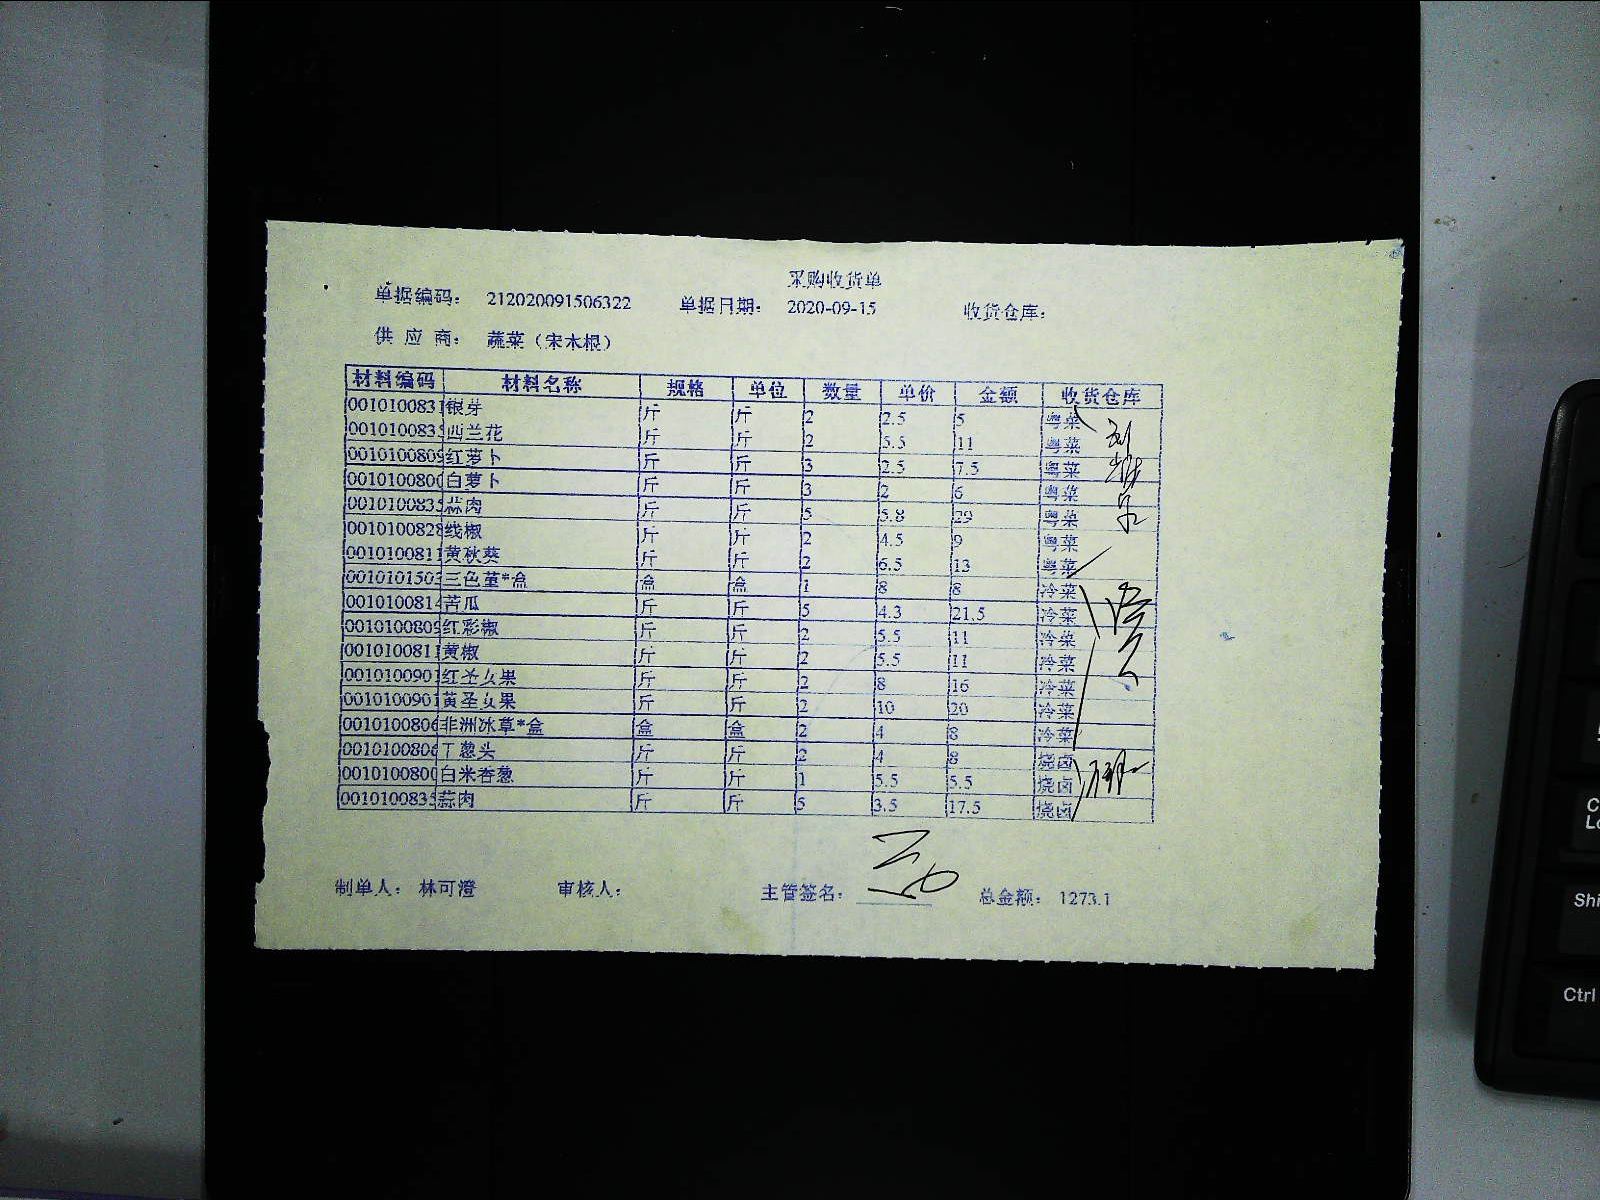 采购收货单
单据编码： 212020091506322 单据日期： 2020-09-15 收货仓库：
供 应 商： 蔬菜（宋木根）
材料编码 材料名称 规格 单位 数量 单价 金额 收货仓库
0010100831 银芽 斤 斤 2 2.5 5 粤菜
001010083 西兰花 斤 斤 2 5.5 11 粤菜
001010080 红萝卜 斤 斤 3 2.5 7.5 粤菜
001010080 白萝卜 斤 斤 3 2 6 粤菜
001010083 蒜肉 斤 斤 5 5.8 29 粤菜
0010100828 线椒 斤 斤 2 4.5 9 粤菜
0010100811 黄秋葵 斤 斤 2 6.5 13 粤菜
001010150 三色堇*盒 盒 盒 1 8 8 冷菜
001010081 苦瓜 斤 斤 5 4.3 21.5 冷菜
001010080 红彩椒 斤 斤 2 5.5 11 冷菜
0010100811 黄椒 斤 斤 2 5.5 11 冷菜
001010090 红圣女果 斤 斤 2 8 16 冷菜
001010090 黄圣女果 斤 斤 2 10 20 冷菜
001010080 非洲冰草*盒 盒 盒 2 4 8 冷菜
001010080 干葱头 斤 斤 2 4 8 烧卤
001010080 白米香葱 斤 斤 1 5.5 5.5 烧卤
001010083 蒜肉 斤 斤 5 3.5 17.5 烧卤
制单人： 林可澄 审核人： 主管签名： 总金额： 1273.1
Shi
Ctrl